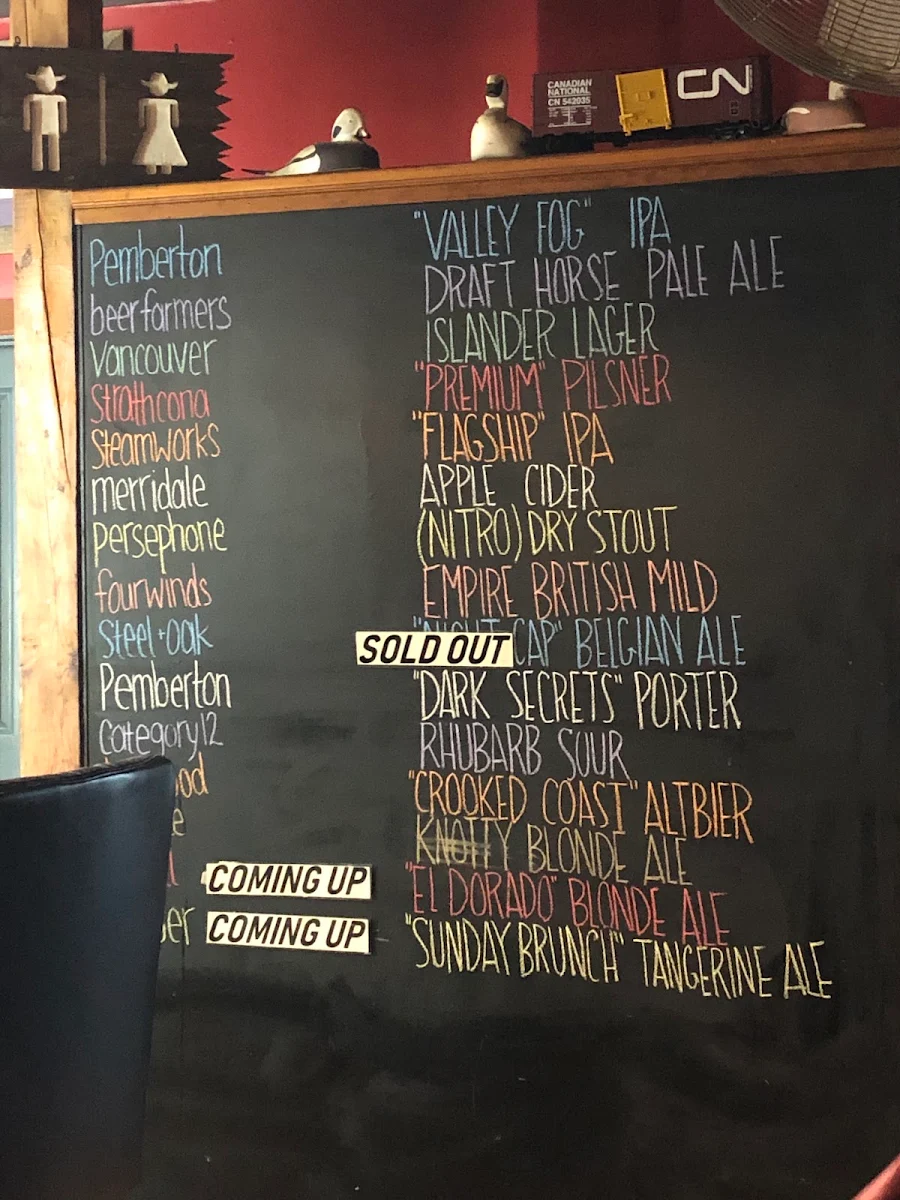 CANADIAN
NATIONAL
CN 542035
CN
Pemberton "VALLEY FOG" IPA
beerfarmers DRAFT HORSE PALE ALE
Vancouver ISLANDER LAGER
Strathcona "PREMIUM" PILSNER
Steamworks "FLAGSHIP" IPA
merridale APPLE CIDER
persephone (NITRO) DRY STOUT
fourwinds EMPIRE BRITISH MILD
Steel+Oak SOLD OUT CAP" BELGIAN ALE
Pemberton "DARK SECRETS" PORTER
Category12 RHUBARB SOUR
od "CROOKED COAST" ALTBIER
e KNOTTY BLONDE ALE
COMING UP "EL DORADO" BLONDE ALE
er COMING UP "SUNDAY BRUNCH" TANGERINE ALE